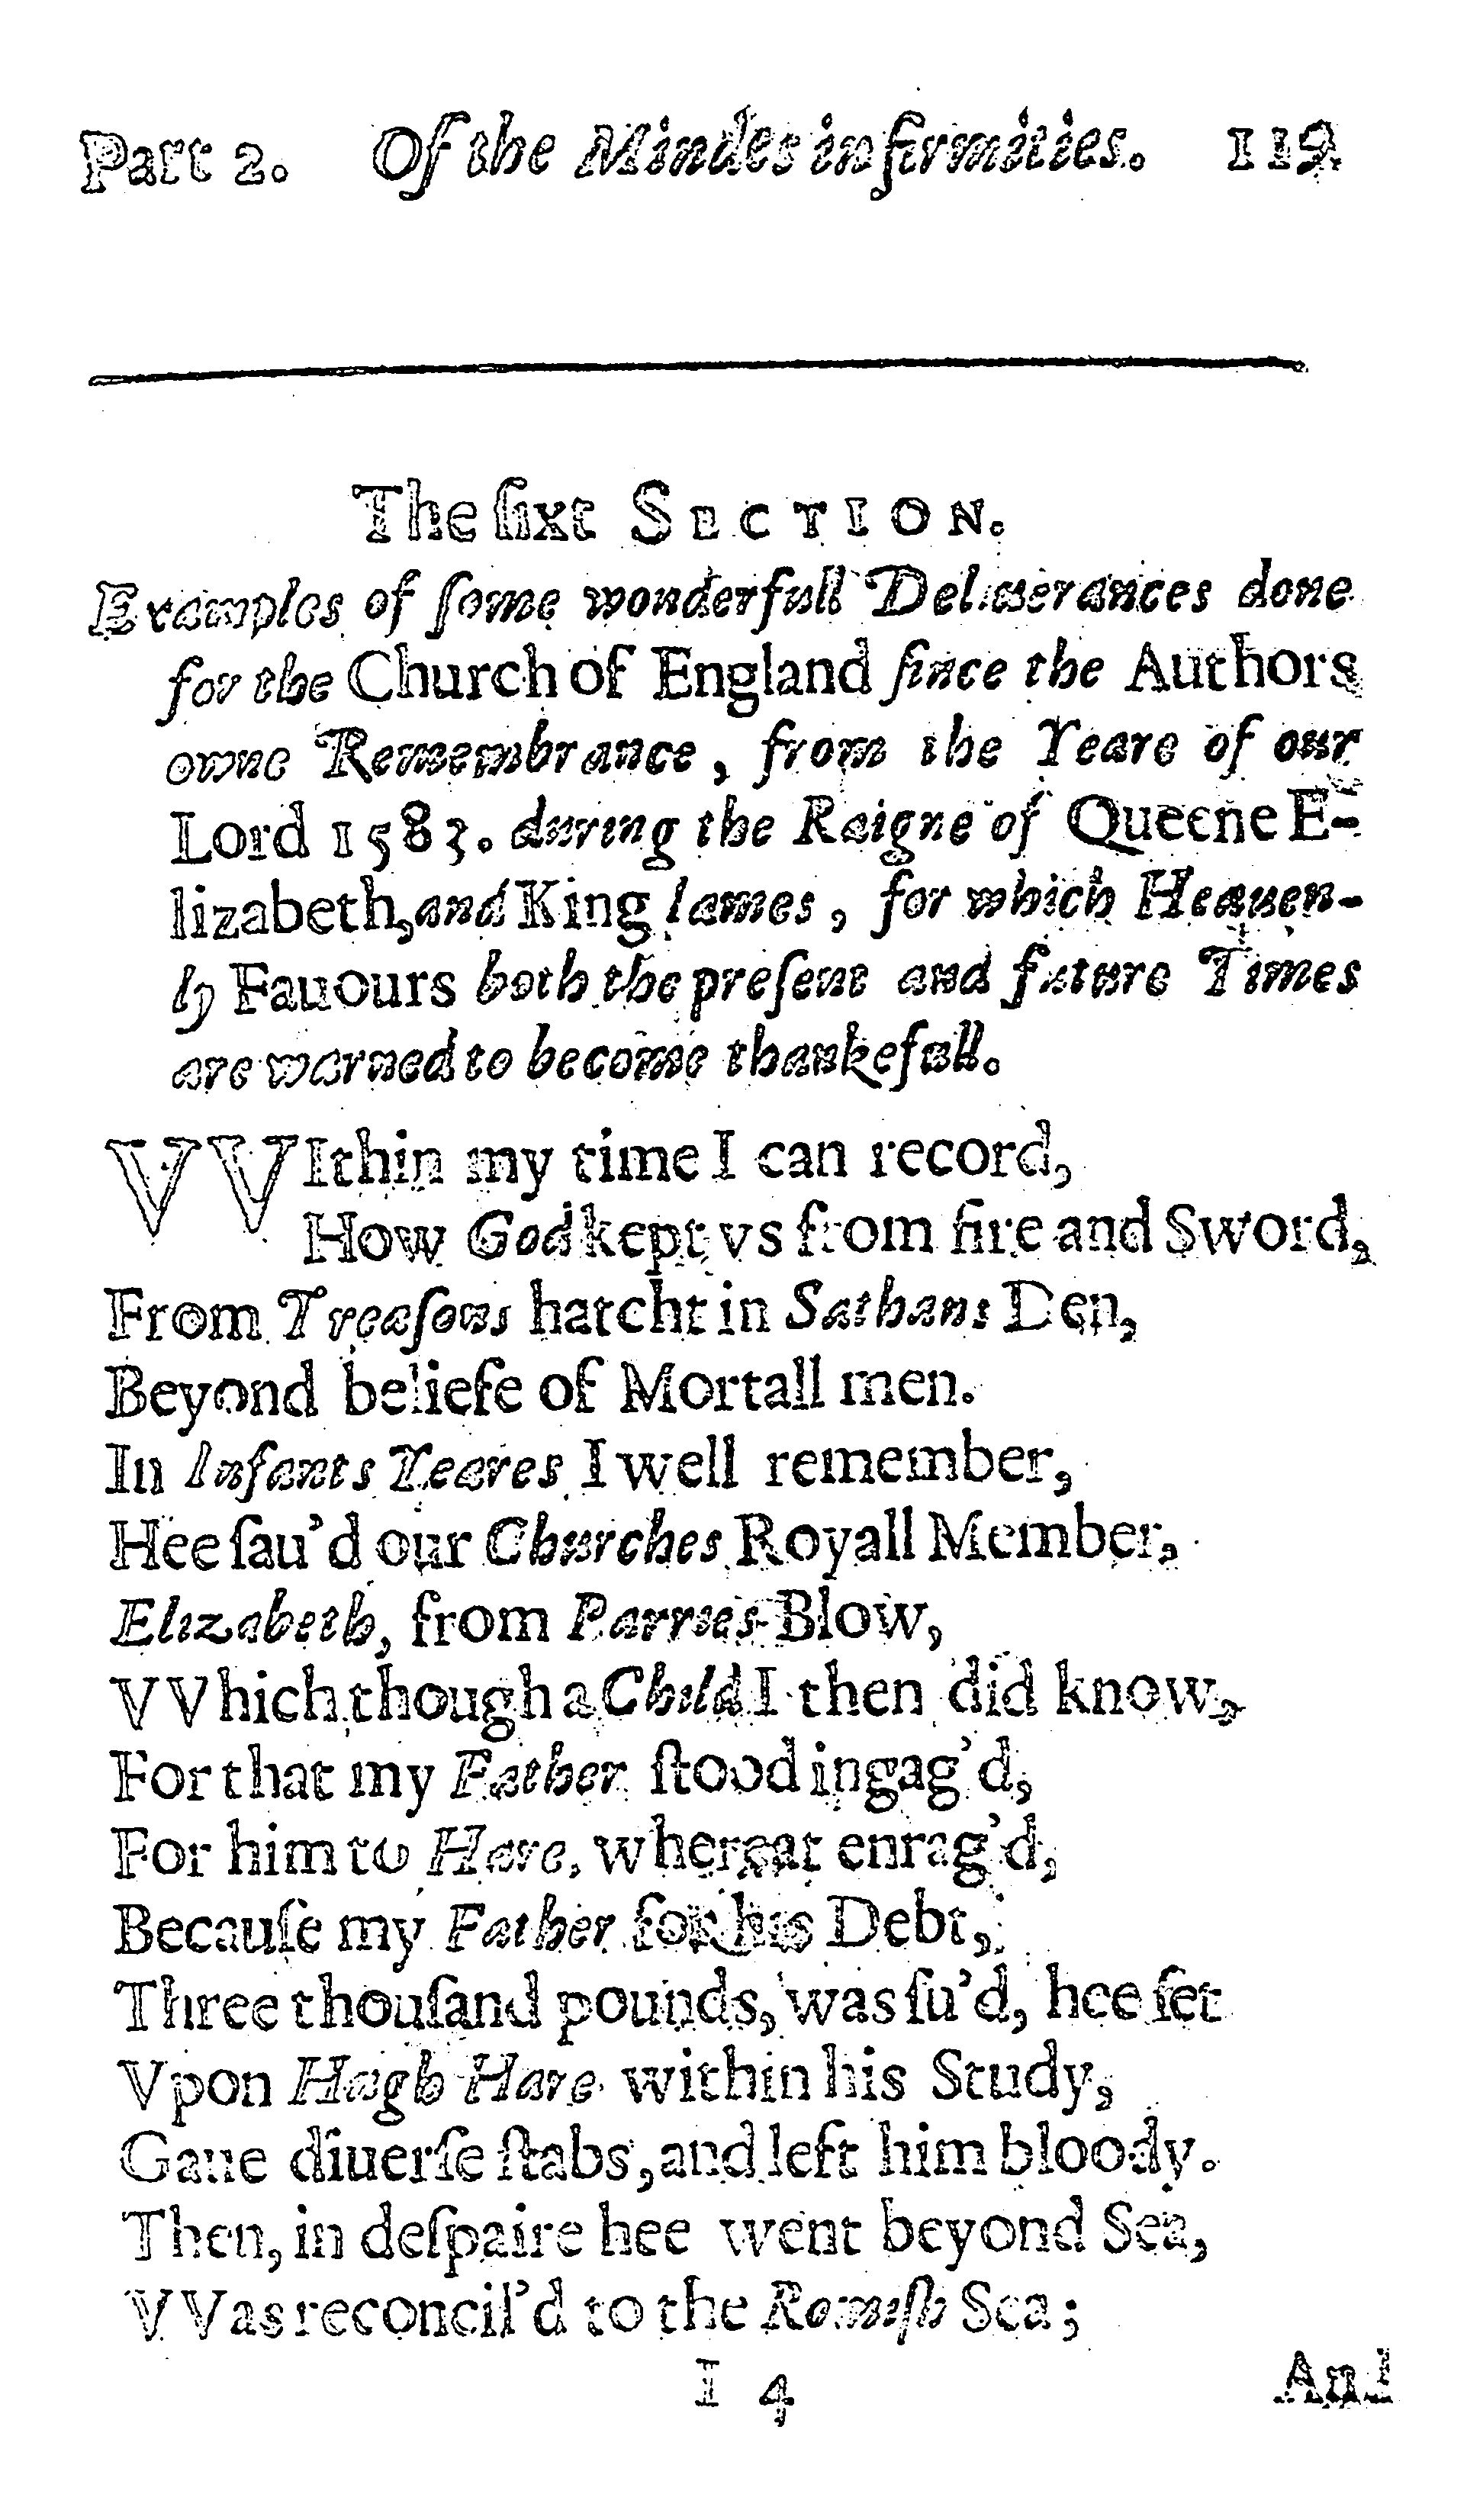 Part 2. Of the Mindes infirmities. 119.
The ſixt SECTION.
Examples of ſome wonderfull Deliuerances done
for the Church of England ſince the Authors
owne Remembrance, from the Yeare of our
Lord 1583. during the Raigne of Queene E-
lizabeth, and King Iames, for which Heauen-
ly Fauours both the preſent and future Times
are warned to become thankefull.
VVIthin my time I can record,
How God kept vs from fire and Sword,
From Treaſons hatcht in Sathans Den,
Beyond beliefe of Mortall men.
In Infants Yeares I well remember,
Hee ſau'd our Churches Royall Member,
Elizabeth, from Parries Blow,
VVhich though a Child I then did know,
For that my Father ſtood ingag'd,
For him to Hare, whereat enrag'd,
Becauſe my Father for his Debt,
Three thouſand pounds, was ſu'd, hee ſet
Vpon Hugh Hare within his Study,
Gaue diuerſe ſtabs, and left him bloody.
Then, in deſpaire hee went beyond Sea,
VVas reconcil'd to the Romiſh Sea;
I 4 And